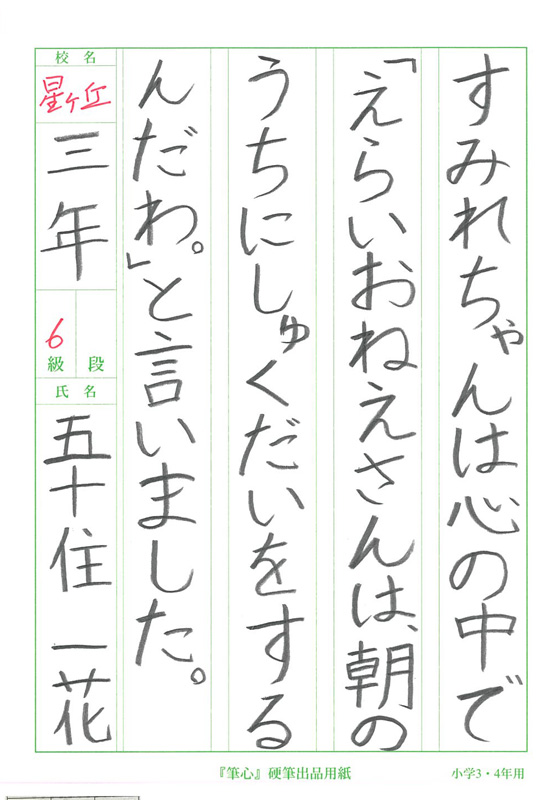 すみれちゃんは心の中で
「えらいおねえさんは、朝の
うちにしゅくだいをする
んだわ。」と言いました。
校名
星ヶ丘
三年
6
級 段
氏名
五十住 一花
『筆心』硬筆出品用紙
小学3・4年用